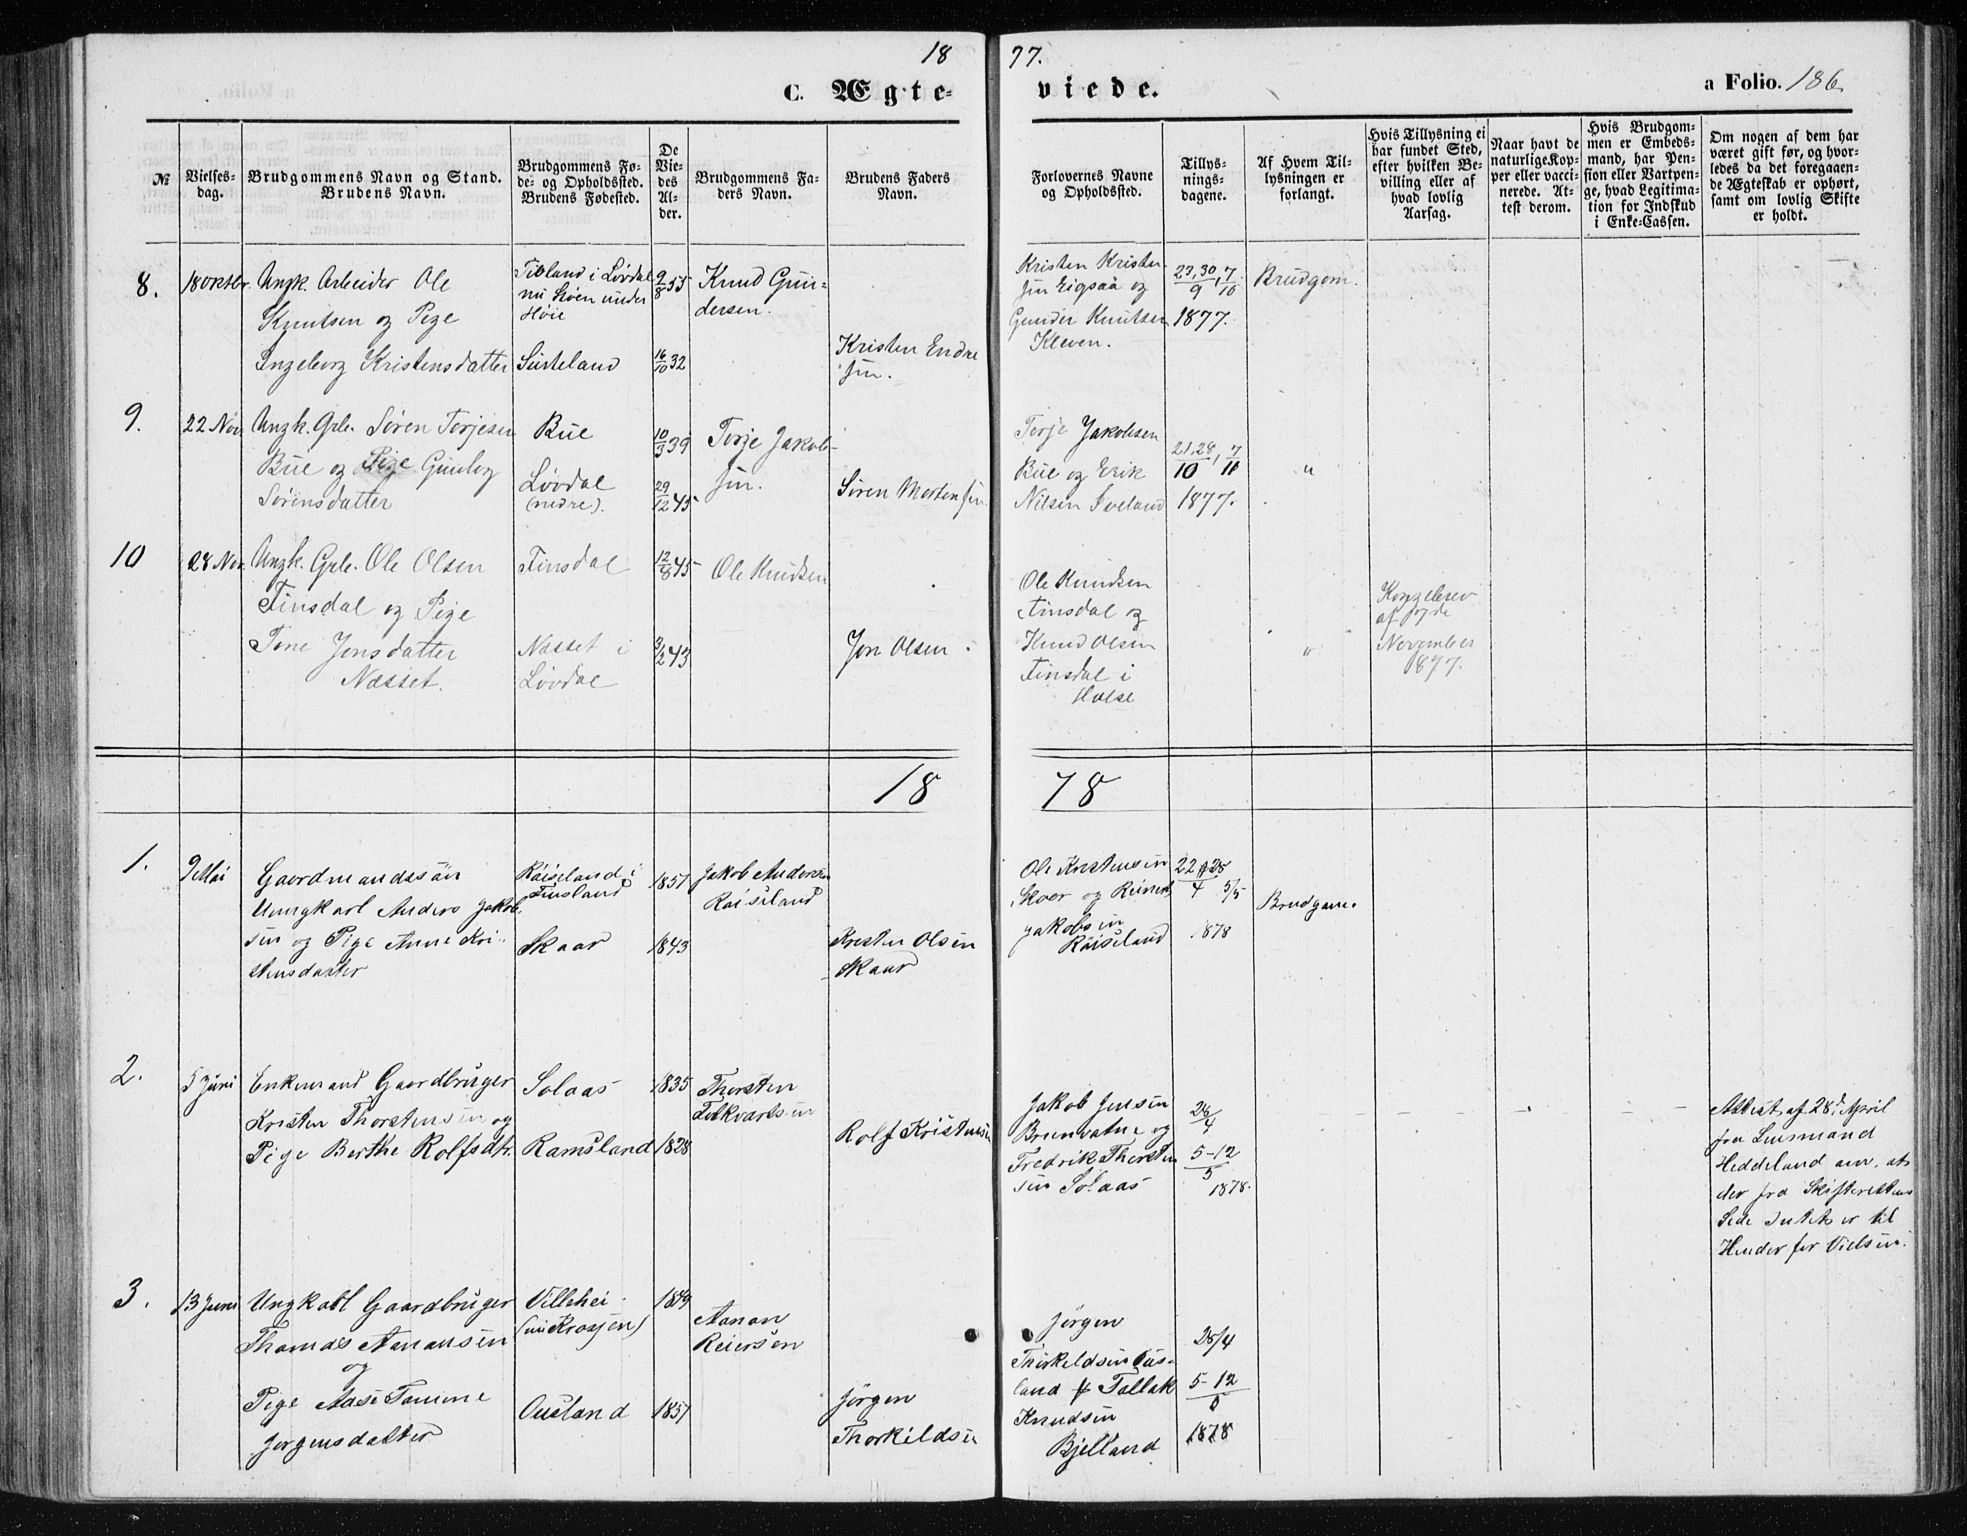 18 77.
C. Ægte- viede. a Folio. 186.
№
Vielses-
dag.
Brudgommens Navn og Stand.
Brudens Navn.
Brudgommens Fø-
de- og Opholdssted.
Brudens Fødested.
De
Vie-
des
Al-
der.
Brudgommens Fa-
ders Navn.
Brudens Faders
Navn.
Forlovernes Navne
og Opholdssted.
Tillys-
nings-
dagene.
Af Hvem Til-
lysningen er
forlangt.
Hvis Tillysning ei
har fundet Sted,
efter hvilken Be-
villing eller af
hvad lovlig
Aarsag.
Naar havt de
naturlige Kop-
per eller vacci-
nerede. At-
test derom.
Hvis Brudgom-
men er Embeds-
mand, har Pen-
sion eller Vartpen-
ge, hvad Legitima-
tion for Indskud
i Enke-Cassen.
Om nogen af dem har
været gift før, og hvor-
ledes da det foregaaen-
de Ægteskab er ophørt,
samt om lovlig Skifte
er holdt.
8.
18 Oktbr.
Ungk. Arbeider Ole
Knutsen og Pige
Ingeborg Kristensdatter
i Løvdal
nu under
Høie
9/8 55
16/10 32
Knud Gun-
dersen.
Kristen Endre
sen.
Kristen Kristen
sen Eigsaa og
Gunder Knutsen
Kleven.
23,30/9, 7/10
1877.
Brudgom.
9.
22 Nov.
Ungk. Grb. Søren Torjesen
Bue og Pige Gunlog
Sørensdatter
Bue
Løvdal
(nedre).
10/3 39
29/12 45
Torje Jakob-
sen.
Søren Mortensen
Torje Jakobsen
Bue og Erik
Nilsen
21,28/10, 7/10
1877.
"
10
28 Nov.
Ungk. Grb. Ole Olsen
Finsdal og Pige
Tone Jonsdatter
Næsset.
Finsdal
Næsset i
Løvdal
12/8 45
3/2 43
Ole Knudsen
Jon Olsen
Ole Knudsen
Finsdal og
Knud Olsen
Finsdal i
Holse
"
Kongebrev
af
November
1877.
18 78
1.
9 Mai
Gaardmandssøn
Ungkarl Anders Jakob
sen og Pige Anne Kri-
stensdatter
Røiseland i
Finsland
Skaar
1857
1843
Jakob Andersen
Røiseland
Kristen Olsen
Skaar
Ole Kristensen
Skaar og Reinert
Jakobsen
Røiseland
28/4 5/5
1878
Brudgom.
2.
5 Juni
Enkemand Gaardbruger
Kristen Thorstensen og
Pige Berthe Rolfsdtr.
Solaas
Ramsland
1835
1828
Thorsten
Rolf Kristensen
Jakob Jensen
og
Fredrik Thorsten
sen Solaas
28/4
5-12/5
1878.
Attest af 28de April
fra Lensmand
Heddeland om, at
der fra Skifterettens
Side Intet er til
Hinder for Vielsen.
3.
13 Juni
Ungkarl Gaardbruger
Thomas Aanansen
og
Pige Aase Tomine
Jørgensdatter
Villehei
Ousland
1849
1857
Aanan
Reiersen
Jørgen
Thorkildsen
Jørgen
Thorkildsen Ous-
land & Tallak
Knudsen
Bjelland
28/4
5-12/5
1878